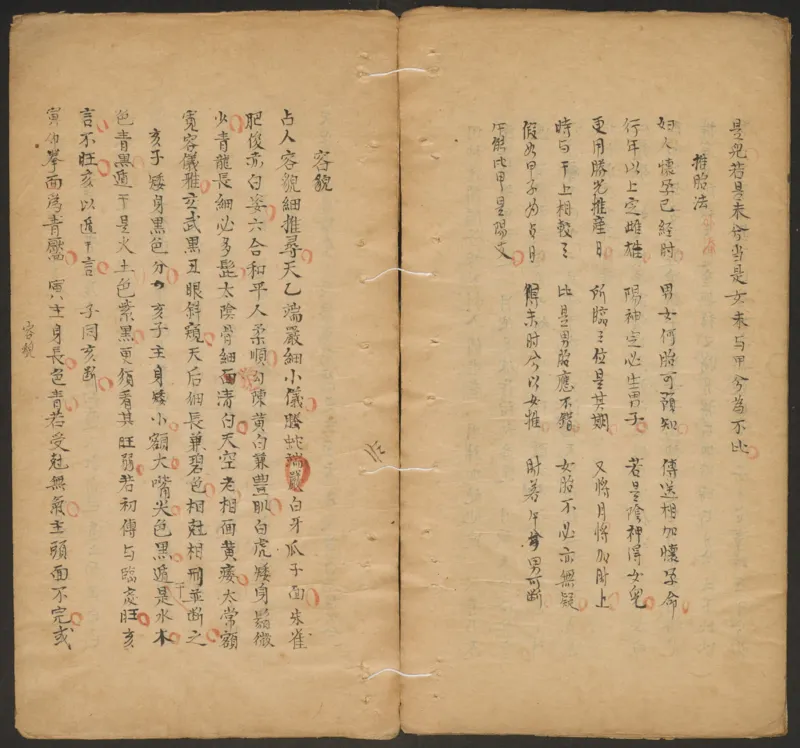 是兒若是未兮当是女未与甲兮為不比
推胎法
妇人懷孕已經时 男女何胎可預知 傳送相加懷孕命
行年以上定雌雄 陽神定必生男子 若是陰神得女兒
更用勝光推產日 所臨之位是其期 又將月將加时上
時与干上相較之 比是男胎應不錯 女胎不必亦無疑
假如甲子為占日 未时兮以女推 时若午兮男可断
午与比甲是陽支
容貌
占人容貌細推尋天乙端嚴細小儀騰蛇端嚴白牙瓜子面朱雀
肥俊赤白姿六合和平人柔順勾陳黃白兼豊肌白虎矮身鬚微
少青龍長細必多髭太陰骨細面清白天空老相面黃瘦太常額
寬容儀雅玄武黑丑眼斜窺天后細長兼碧色相尅相刑並断之
亥子矮身黑色分 亥子主身矮小額大嘴尖色黑遁干是水木
色青黑遁干是火土色紫黑更須看其旺弱若初傳与臨處旺亥
言不旺亥以遁干言 子同亥断
寅卯拳面為青靨 寅主身長色青若受尅無氣主頭面不完或
容貌